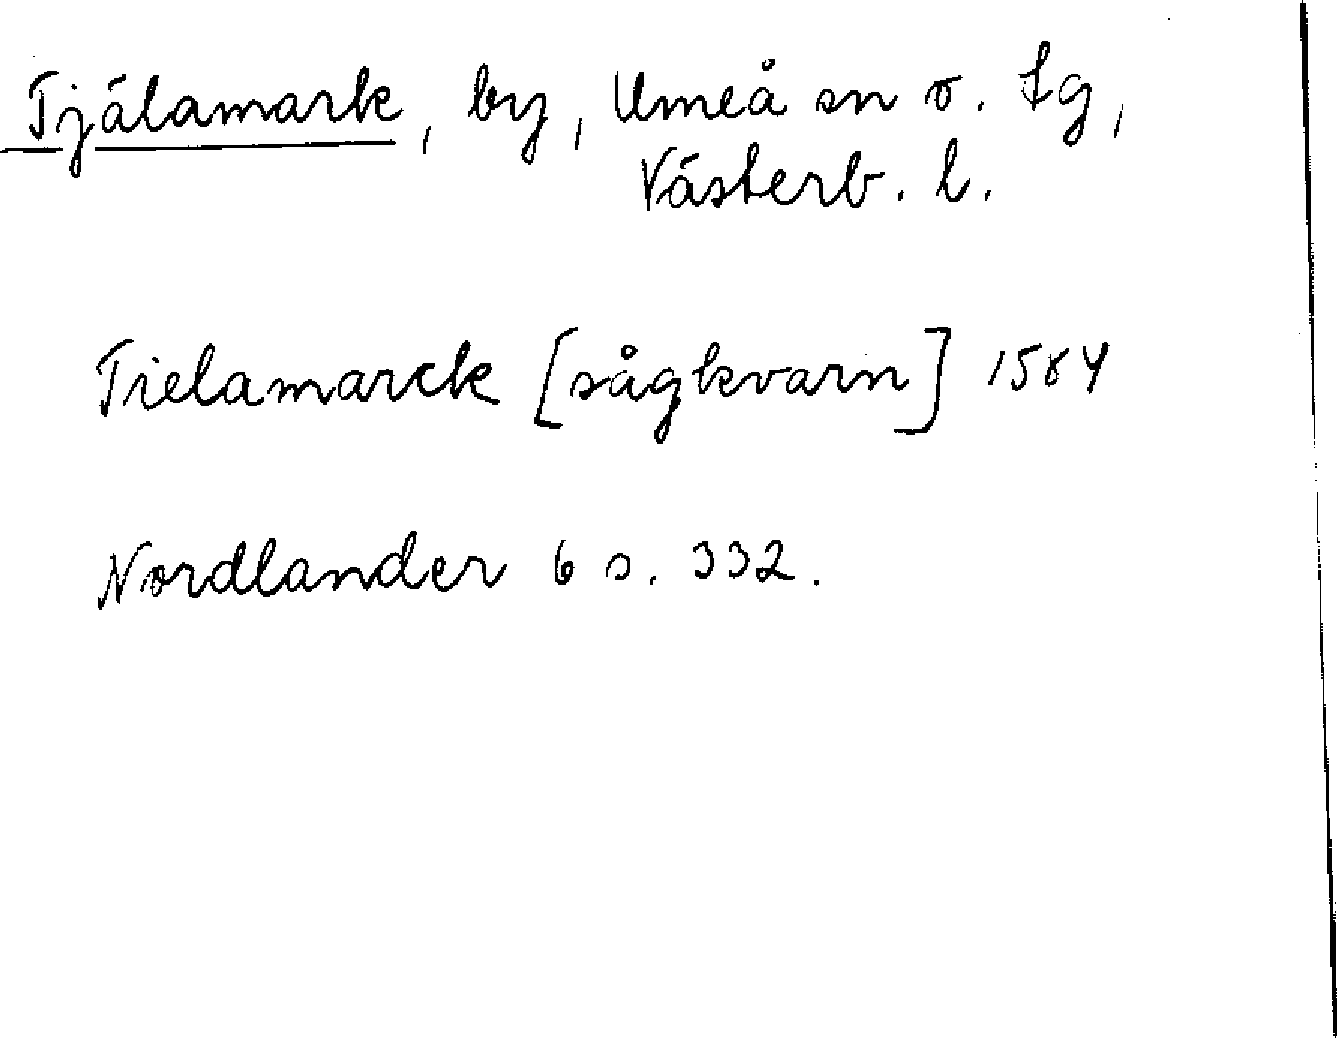 Tjälamark, by, Umeå sn o. tg,
Västerb. l.
Tielamarck [sågkvarn] 1584
Nordlander 6 s. 332.